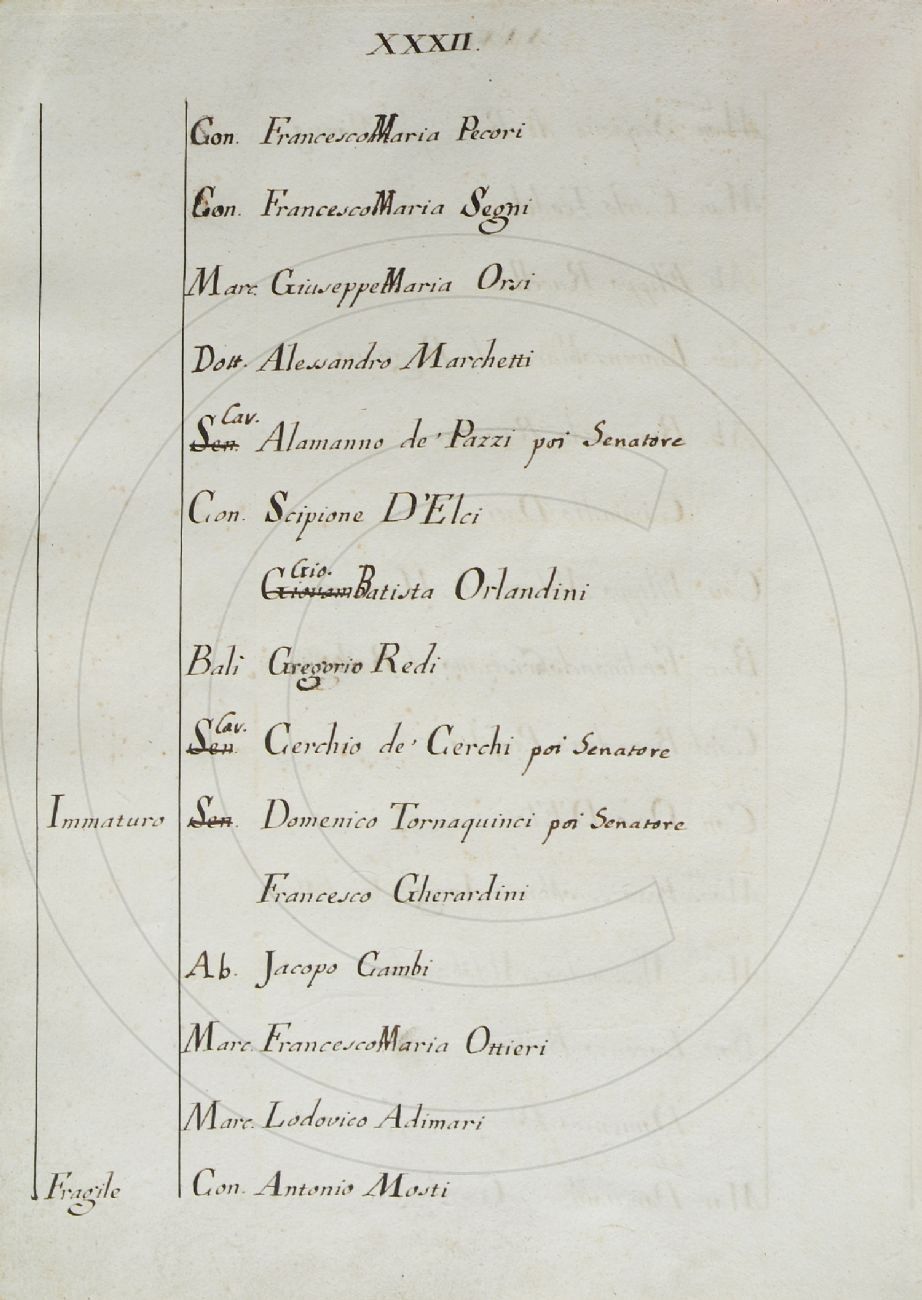 XXXII.
Con. FrancescoMaria Pecori
Con. FrancescoMaria Segni
Marc. GiuseppeMaria Orsi
Dott. Alessandro Marchetti
Cav.
Sen. Alamanno de' Pazzi poi Senatore
Con. Scipione D'Elci
Gio.
GiovamBatista Orlandini
Balì Gregorio Redi
Cav.
Sen. Cerchio de' Cerchi poi Senatore
Immaturo Sen. Domenico Tornaquinci poi Senatore
Francesco Gherardini
Ab. Jacopo Gambi
Marc. FrancescoMaria Ottieri
Marc. Lodovico Adimari
Fragile Con. Antonio Mosti